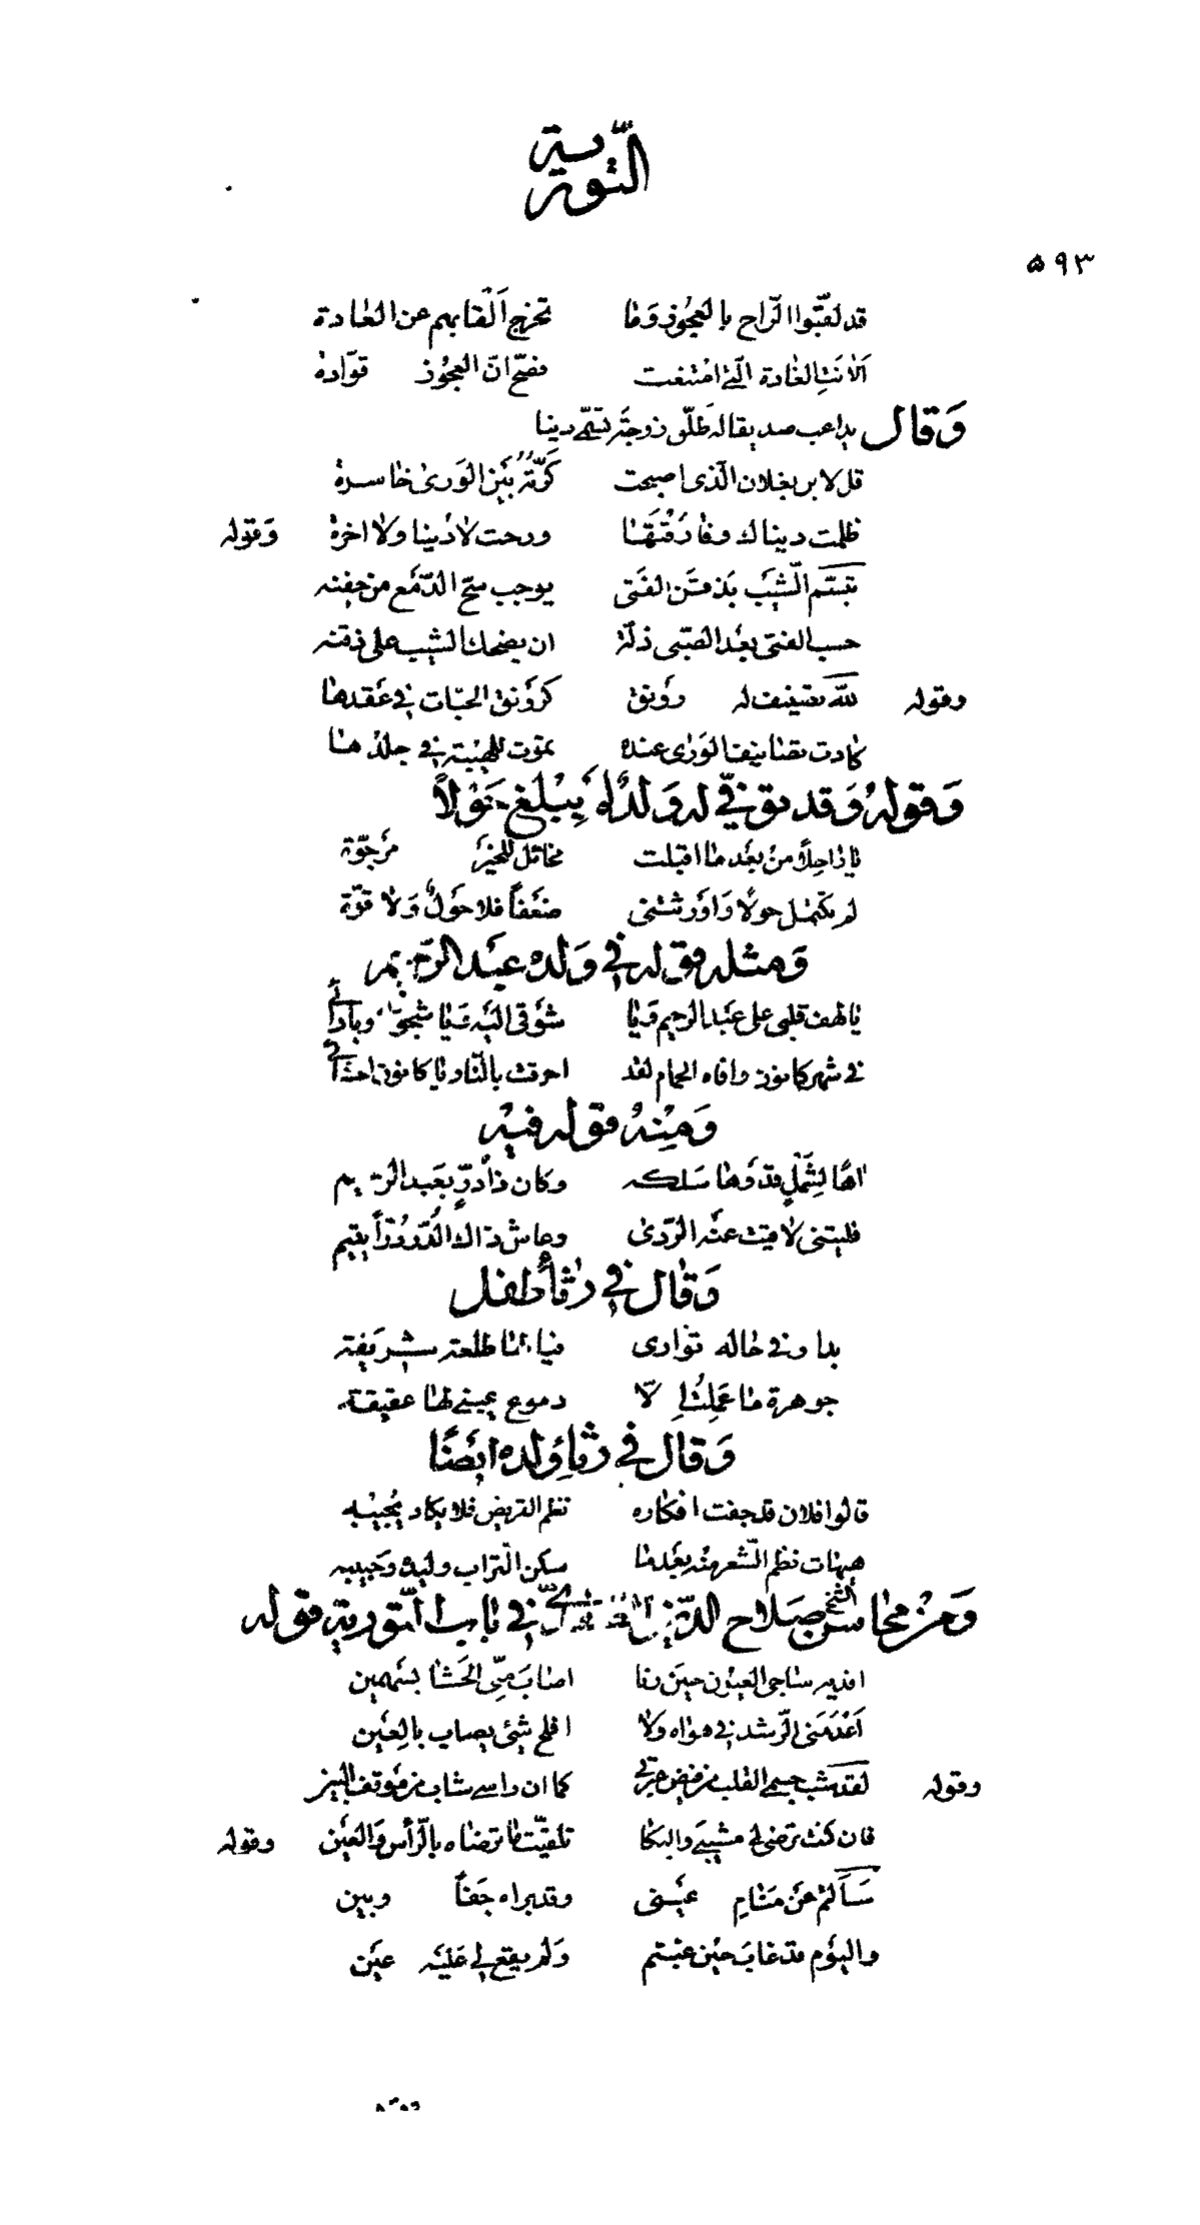 التورية
٥٩٣
قد لقبوا الراح بالعجوز وما تخرج ألقابهم عن العادة
ألانت الغادة التي امتنعت فصح ان العجوز قوادة
وقال يداعب صديقا له طلق زوجة تسمى دينا
قل لابن بغلان الذي اصبحت كرته بين الورى خاسرة
ظلمت ديناك وفارقتها ورحت لا دينا ولا اخرة وقوله
تبسم الشيب بذقن الفتى يوجب سح الدمع من جفنه
حسب الفتى بعد الصبى ذلة ان يضحك الشيب على ذقنه
وقوله لله تصنيف له رونق كرونق الحبات في عقدها
كادت تصانيف الورى عنده تموت للهيبة في جلدها
وقوله وقد توفي له ولد له يبلغ حولا
يا راحلا من بعد ما اقبلت مخائل للخير مرجوة
لم تكتمل حولا واورثتني ضعفا فلا حول ولا قوة
ومثله قوله في ولده عبد الرحيم
يا لهف قلبي على عبد الرحيم ويا شوقي اليه ويا شجوي ويا دائي
في شهر كانون وافاه الحمام لقد احرقت بالنار يا كانون احشائي
ومنه قوله فيه
اها لشمل قد وها سلكه وكان ذا در بعبد الرحيم
فليتني لاقيت عنه الردى وعاش ذاك الدر درا يتيم
وقال في رثاء طفل
بدا وفي حاله توارى فيا لها طلعة شريفة
جوهرة ما عملت لا دموع عيني لها عقيقة
وقال في رثاء ولده ايضا
قالوا فلان قد جفت افكاره نظم القريض فلا يكاد يجيبه
هيهات نظم الشعر منه بعدما سكن التراب وليده وحبيبه
ومن محاسن الشيخ صلاح الدين الصفدي في باب التورية قوله
افديه ساجي العيون حين رنا اصاب مني الحشا بسهمين
أعدمني الرشد في هواه ولا افلح شيئ يصاب بالعين
وقوله لقد شب جمر القلب من فيض عبرتي كما ان راسي شاب من موقف البين
فان كنت ترضى لي مشيبي والبكا تلقيت ما ترضاه بالرأس والعين وقوله
سألتم عن منام عيني وقد براه جفا وبين
واليوم قد غاب حين غبتم ولم يقع لي عليه عين